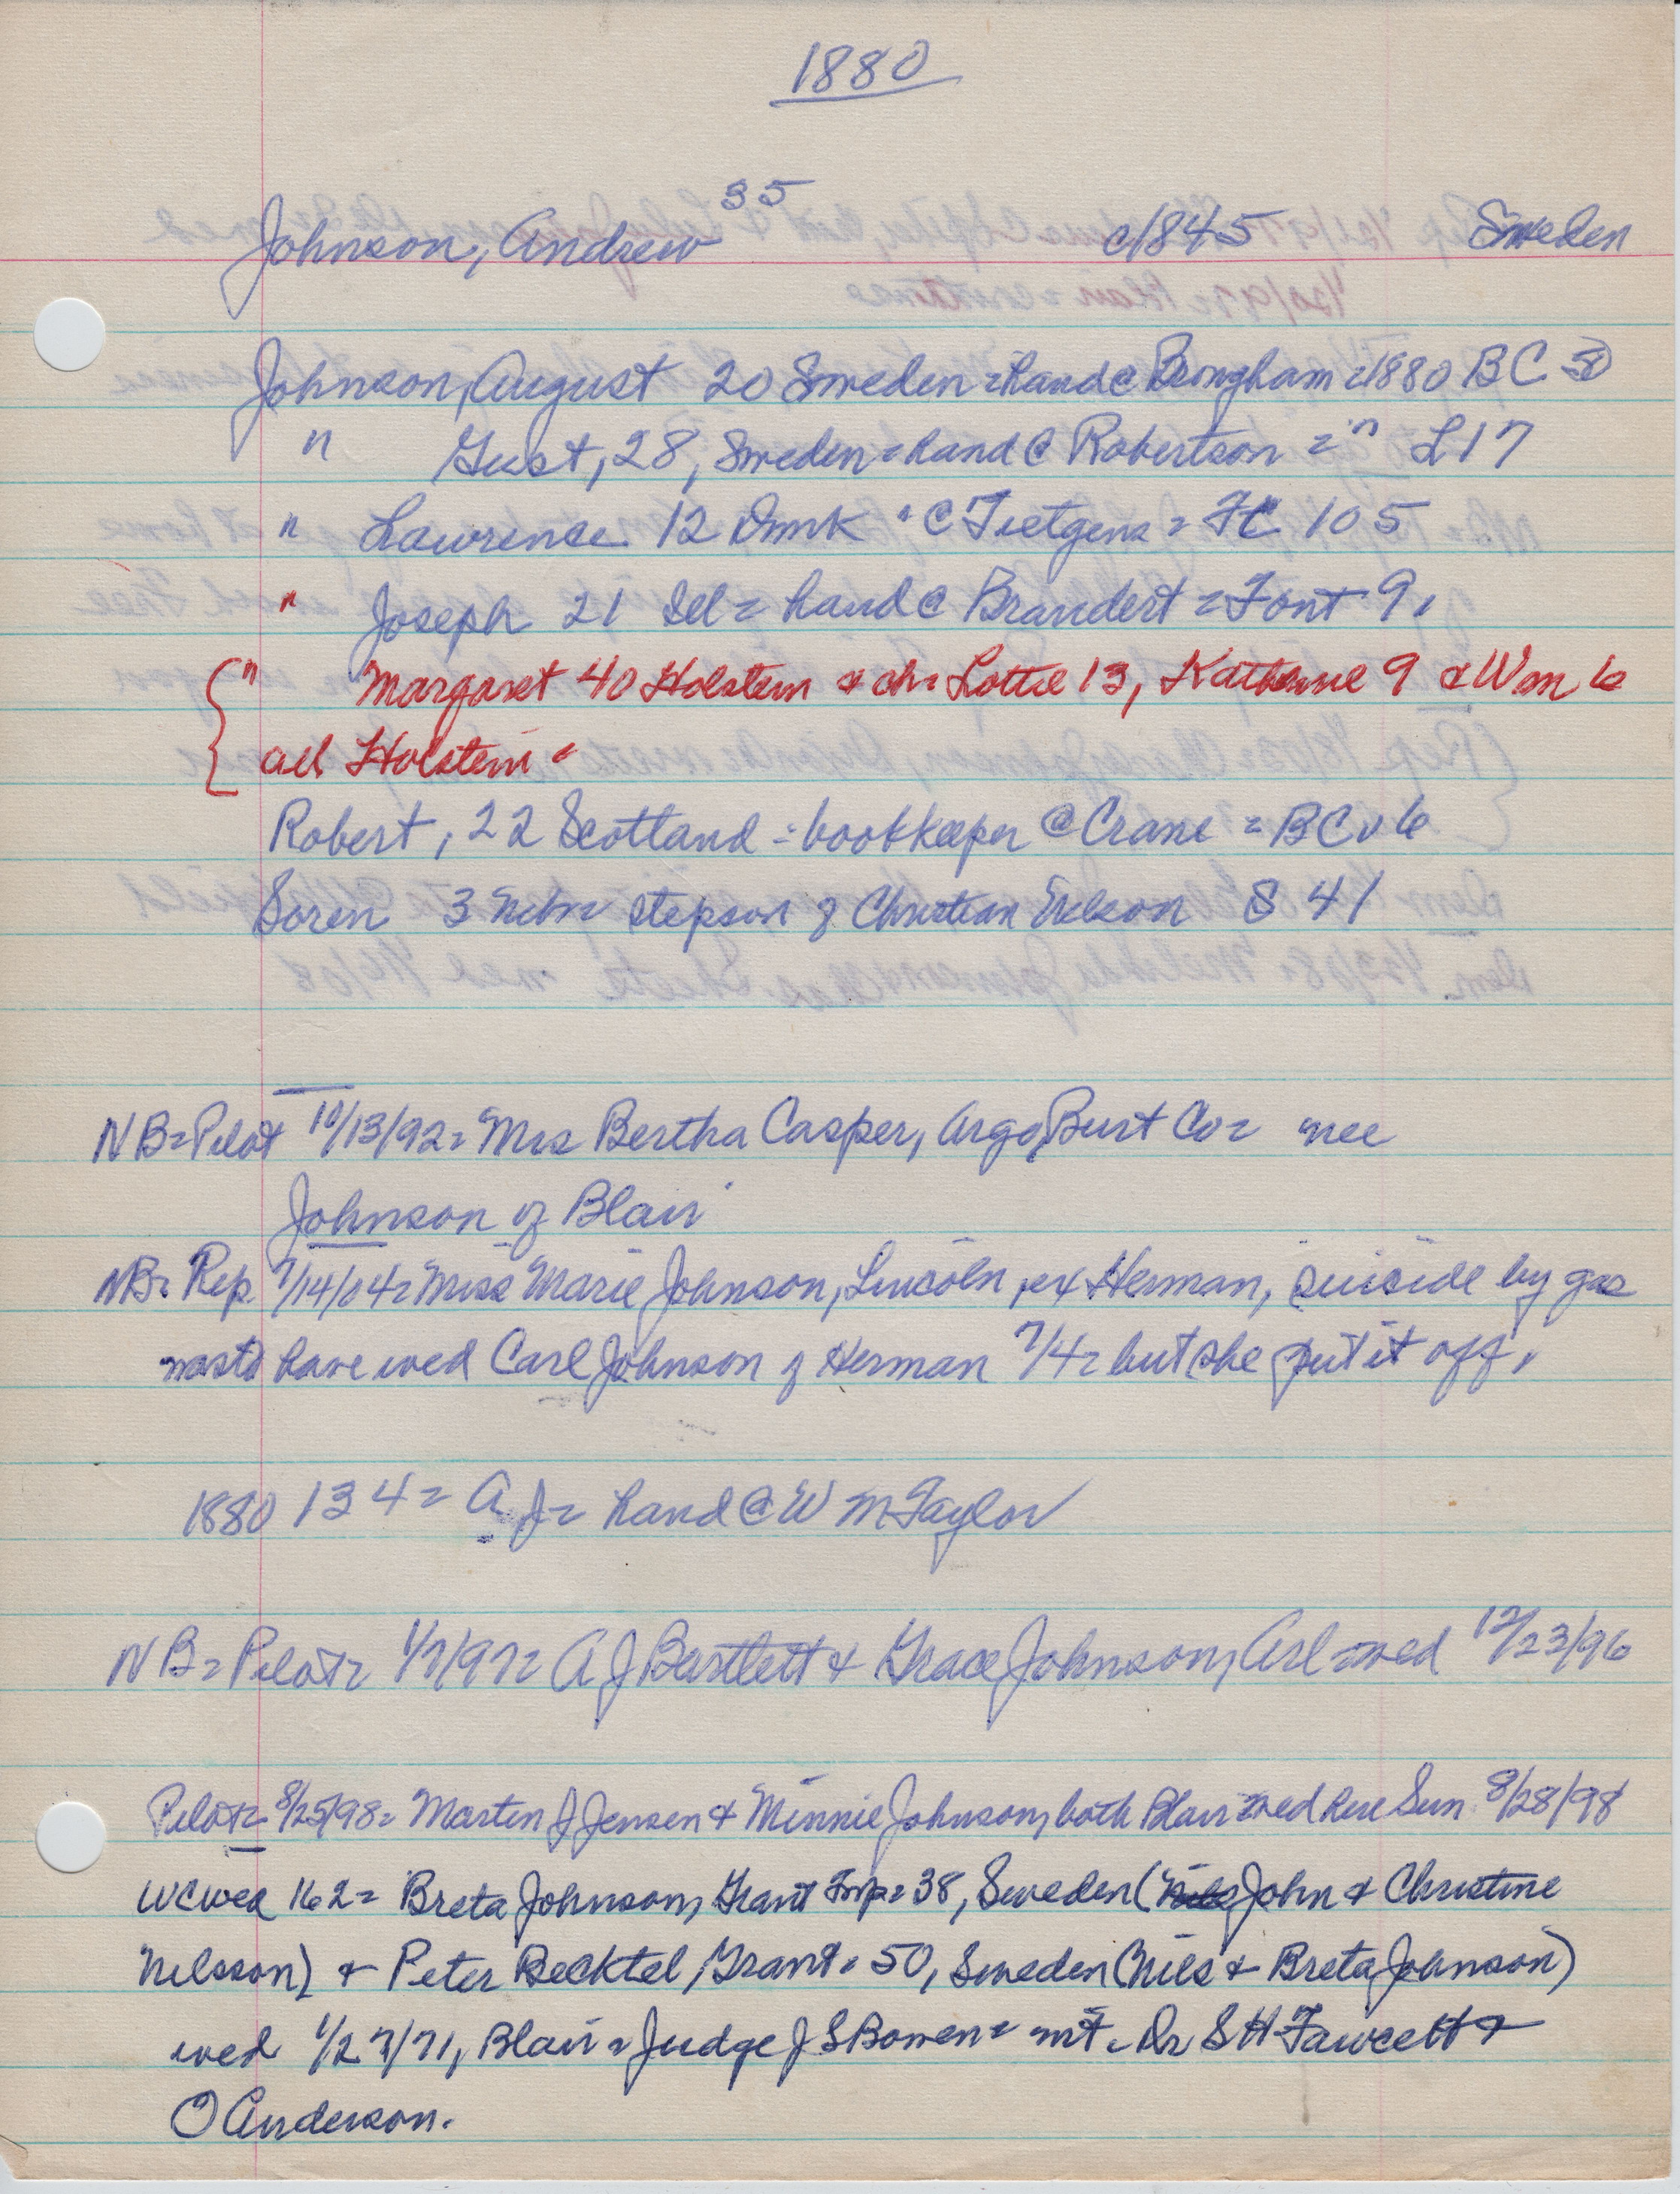 1880
Johnson, Andrew 35 c1845 Sweden
Johnson, August 20 Sweden = hand @ = 1880 BC
" Gust, 28, Sweden = hand @ Robertson = " L17
" Lawrence 12 Dnmk " @ Tietgens = FC 105
" Joseph 21 = hand @ Brandert = Font 9,
" Margaret 40 Holstein & ch = Lottie 13, Katherine 9 & Wm 6
all Holstein =
Robert, 22 Scotland = bookkeeper @ Crane = BC, 6
Soren 3 Nebr = stepson of Christian S 41
NB = Pilot 10/13/92 = Mrs Bertha Casper, Argo, Burt Co = nee
Johnson of Blair
NB = Rep 7/14/04 = Miss Marie Johnson, Lincoln, ex Herman, suicide by gas
was to have wed Carl Johnson of Herman 7/4 = but she put it off,
1880 134 = A J = hand @ W M Taylor
NB = Pilot = 1/7/97 = A J Bartlett & Grace Johnson, Arl = wed 12/23/96
Pilot = 8/25/98 = Marten J Jensen & Minnie Johnson, both Blair = wed here Sun 8/28/98
WC wed 162 = Breta Johnson, Grant Twp = 38, Sweden (John & Christine
Nelsson) & Peter Becktel, Grant = 50, Sweden (Nils & Breta Johnson)
wed 1/27/71, Blair = Judge J S Bowen = wit = Dr S H Fawcett &
O Anderson.